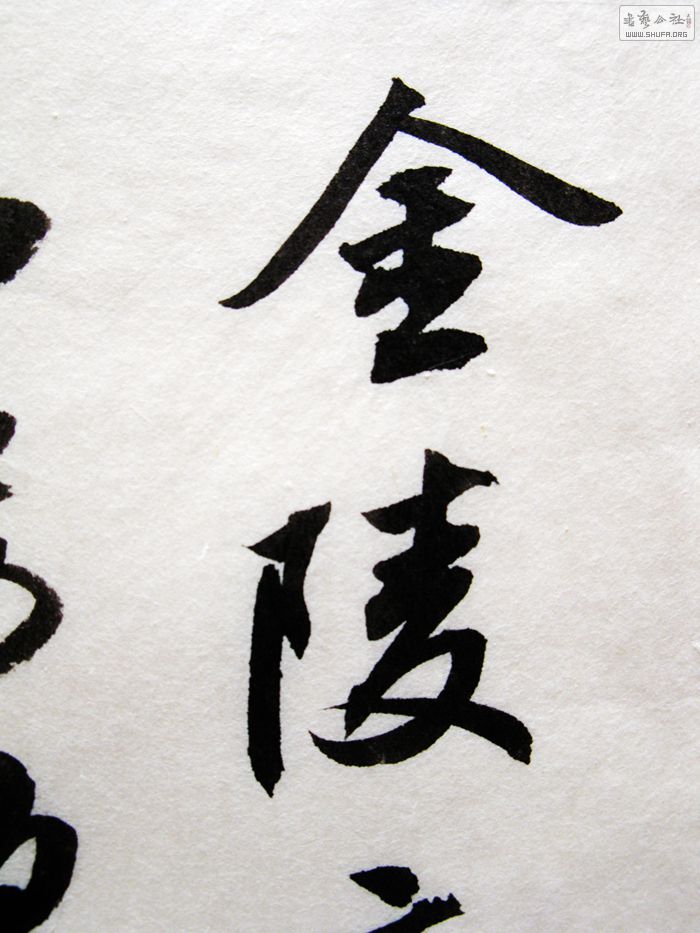 金陵
书艺公社
WWW.SHUFA.ORG